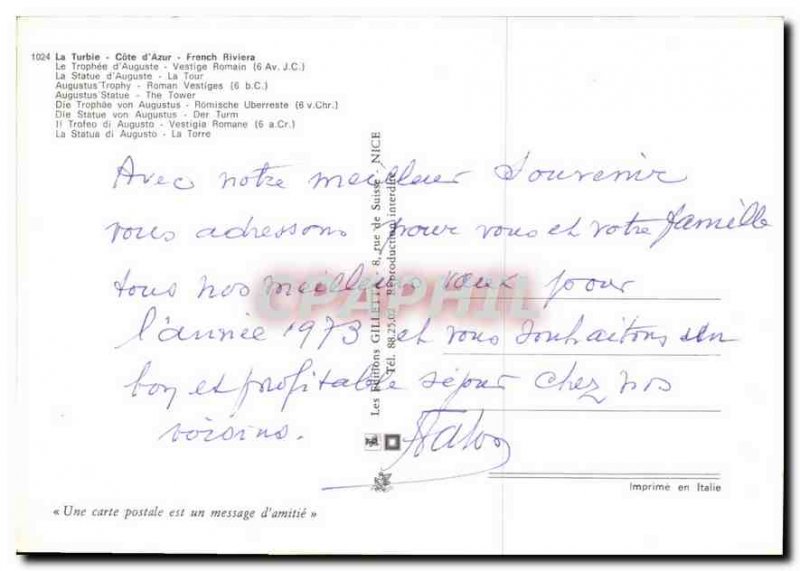 1024 La Turbie - Côte d'Azur - French Riviera
Le Trophée d'Auguste - Vestige Romain (6 Av. J.C.)
La Statue d'Auguste - La Tour
Augustus Trophy - Roman Vestiges (6 b.C.)
Augustus Statue - The Tower
Die Trophäe von Augustus - Römische Uberreste (6 v.Chr.)
Die Statue von Augustus - Der Turm
Il Trofeo di Augusto - Vestigia Romane (6 a.Cr.)
La Statua di Augusto - La Torre
Avec notre meilleur souvenir
vous adressons pour vous et votre famille
tous nos meilleurs vœux pour
l'année 1973 et vous souhaitons un
bon et profitable séjour chez nos
voisins.
Les Editions GILLETTA 8, rue de Suisse NICE
Tél. 88.25.02 Reproduction interdite
CPAPHIL
Imprimé en Italie
« Une carte postale est un message d'amitié »